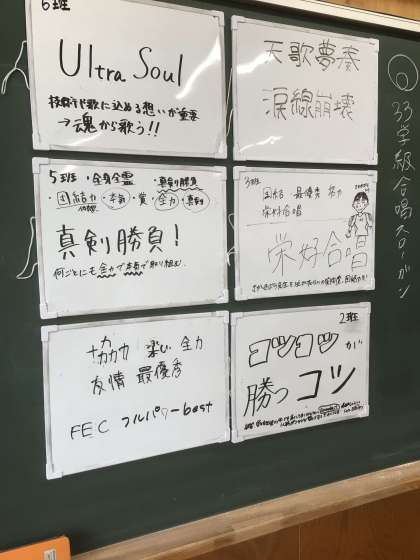 33学級合唱スローガン
6班
Ultra Soul
技術より歌に込める想いが重要
→魂から歌う!!
天歌夢奏
涙線崩壊
5班 ・全身全霊 ・真剣勝負
・団結力 ・本気 ・賞 ・全力 ・真剣
真剣勝負!
何ごとにも全力で本気で取り組む。
3班
団結 最優秀 努力
栄好合唱
栄好合唱
協力 楽しい 全力
友情 最優秀
FEC フルパワーbest
2班
コツコツが
勝つコツ